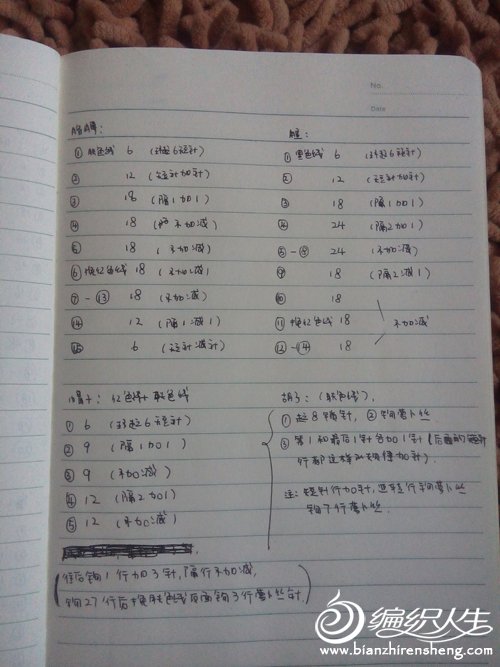 No.
Date
胳膊：
① 肤色线 6 （环起6短针）
② 12 （短针加针）
③ 18 （隔1加1）
④ 18 （不加减）
⑤ 18 （不加减）
⑥ 换红色线 18 （不加减）
⑦－⑬ 18 （不加减）
⑭ 12 （隔1减1）
⑮ 6 （短针减针）
腿：
① 黑色线 6 （环起6短针）
② 12 （短针加针）
③ 18 （隔1加1）
④ 24 （隔2加1）
⑤－⑧ 24 （不加减）
⑨ 18 （隔2减1）
⑩ 18
⑪ 换红色线 18 不加减
⑫－⑭ 18
帽子：红色线+肤色线
① 6 （环起6短针）
② 9 （隔1加1）
③ 9 （不加减）
④ 12 （隔2加1）
⑤ 12 （不加减）
往后钩1行加3针，隔行不加减，
钩27行后换肤色线反面钩3行萝卜丝针
胡子：（肤色线），
① 起8辫针，② 钩萝卜丝
③ 第1和最后1针各加1针（后面的短针
行都这样处规律加针）
注：短针行加针，
钩7行萝卜丝.
编织人生
www.bianzhirensheng.com